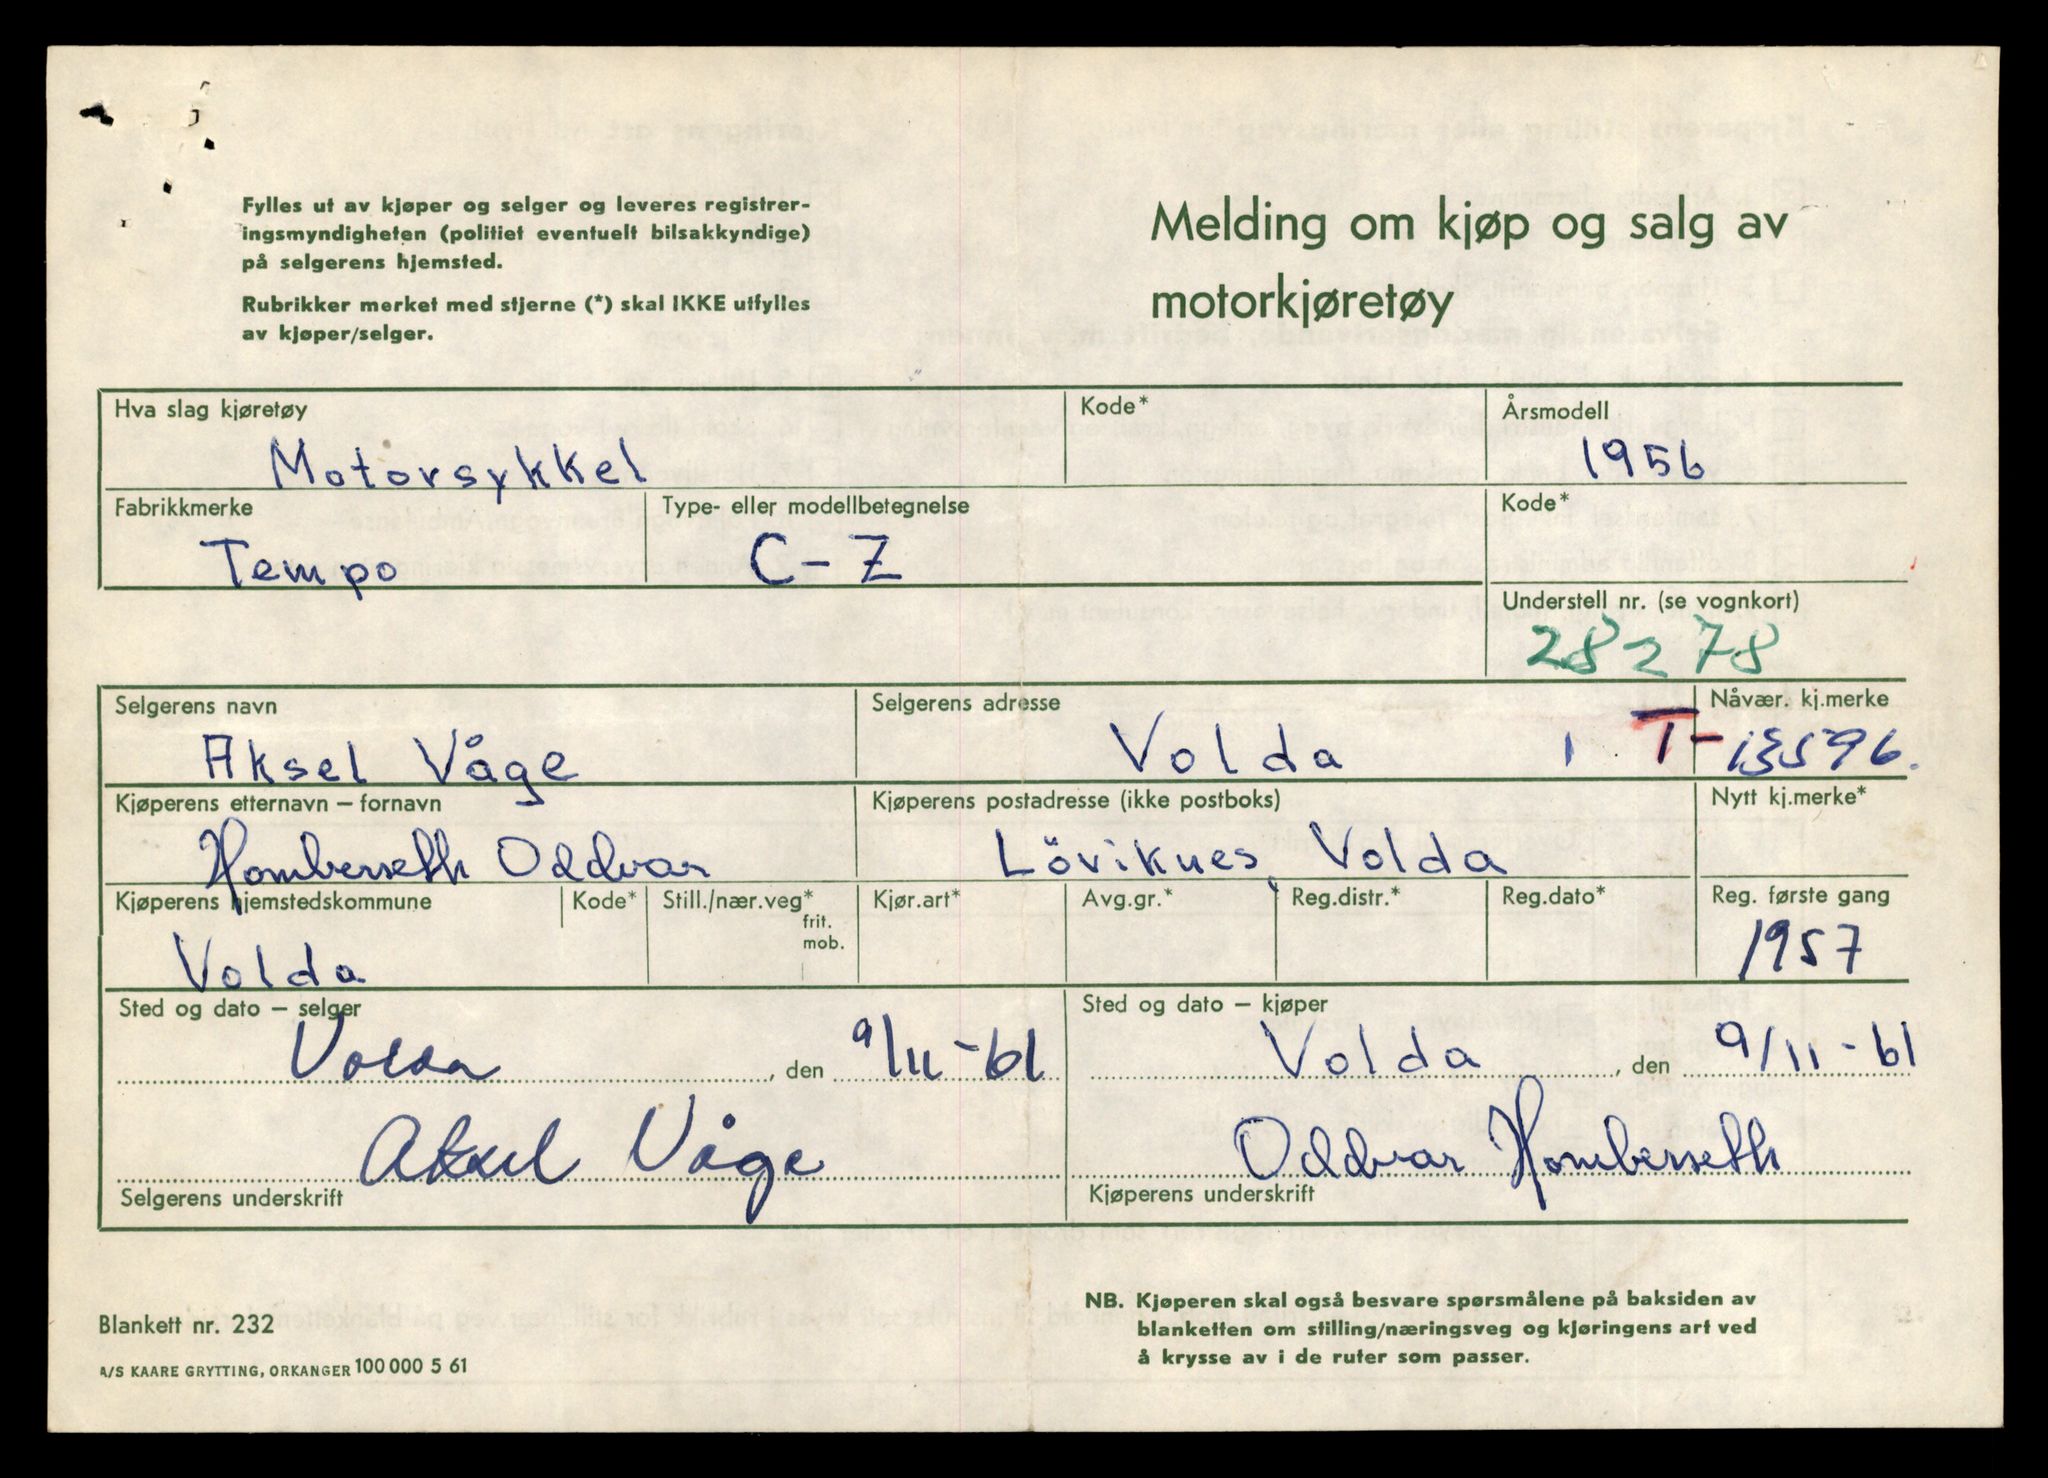 Fylles ut av kjøper og selger og leveres registrer-
ingsmyndigheten (politiet eventuelt bilsakkyndige)
på selgerens hjemsted.
Rubrikker merket med stjerne (*) skal IKKE utfylles
av kjøper/selger.
Melding om kjøp og salg av
motorkjøretøy
Hva slag kjøretøy Kode* Årsmodell
Motorsykkel 1956
Fabrikkmerke Type- eller modellbetegnelse Kode*
Tempo C-Z
Understell nr. (se vognkort)
28278
Selgerens navn Selgerens adresse Nåvær. kj.merke
Aksel Våge Volda T-13596.
Kjøperens etternavn – fornavn Kjøperens postadresse (ikke postboks) Nytt kj.merke*
Homberseth Oddvar Löviknes, Volda
Kjøperens hjemstedskommune Kode* Still./nær.veg* Kjør.art* Avg.gr.* Reg.distr.* Reg.dato* Reg. første gang
frit.
mob.
Volda 1957
Sted og dato – selger Sted og dato – kjøper
Volda, den 9/11-61 Volda, den 9/11-61
Aksel Våge Oddvar Homberseth
Selgerens underskrift Kjøperens underskrift
NB. Kjøperen skal også besvare spørsmålene på baksiden av
blanketten om stilling/næringsveg og kjøringens art ved
å krysse av i de ruter som passer.
Blankett nr. 232
A/S KAARE GRYTTING, ORKANGER 100 000 5 61